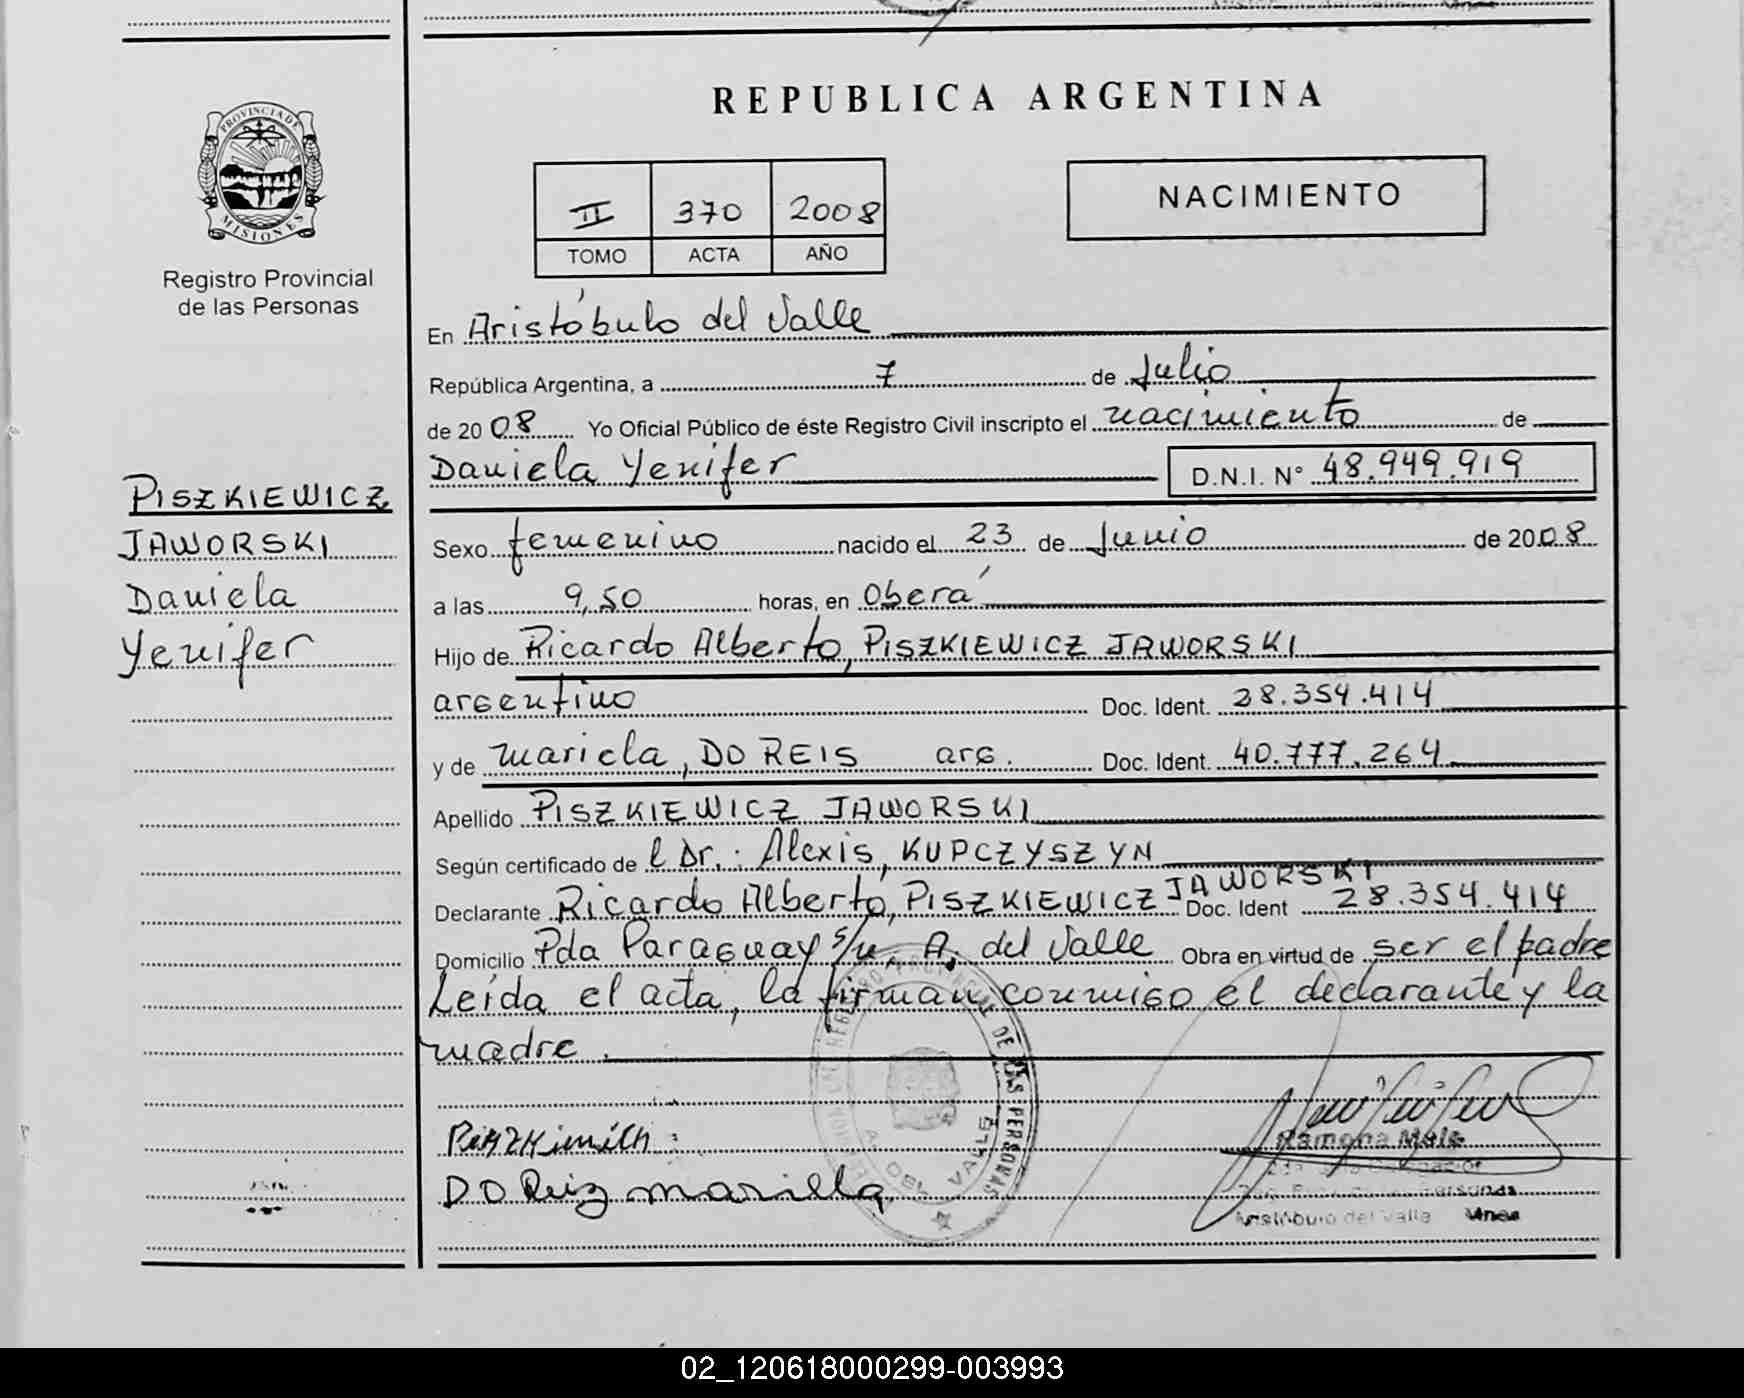 REPUBLICA ARGENTINA
PROVINCIA DE MISIONES
Registro Provincial
de las Personas
II 370 2008
TOMO ACTA AÑO
NACIMIENTO
En Aristóbulo del Valle
República Argentina, a 7 de Julio
de 2008 Yo Oficial Público de éste Registro Civil inscripto el nacimiento de
Daniela Yenifer D.N.I. N° 48.949.919
PISZKIEWICZ
JAWORSKI
Daniela
Yenifer
Sexo femenino nacido el 23 de Junio de 2008
a las 9,50 horas, en Oberá
Hijo de Ricardo Alberto, PISZKIEWICZ JAWORSKI
argentino Doc. Ident. 28.354.414
y de Mariela, DO REIS arg. Doc. Ident. 40.777.264
Apellido PISZKIEWICZ JAWORSKI
Según certificado de l Dr.: Alexis, KUPCZYSZYN
Declarante Ricardo Alberto, PISZKIEWICZ JAWORSKI Doc. Ident 28.354.414
Domicilio Pda Paraguay s/n. A. del Valle Obra en virtud de ser el padre
Leída el acta, la firman conmigo el declarante y la
madre.
DE LAS PERSONAS
A. DEL VALLE
DO Reiz mariela
Ramona
Aristóbulo del Valle Mnes
02_120618000299-003993